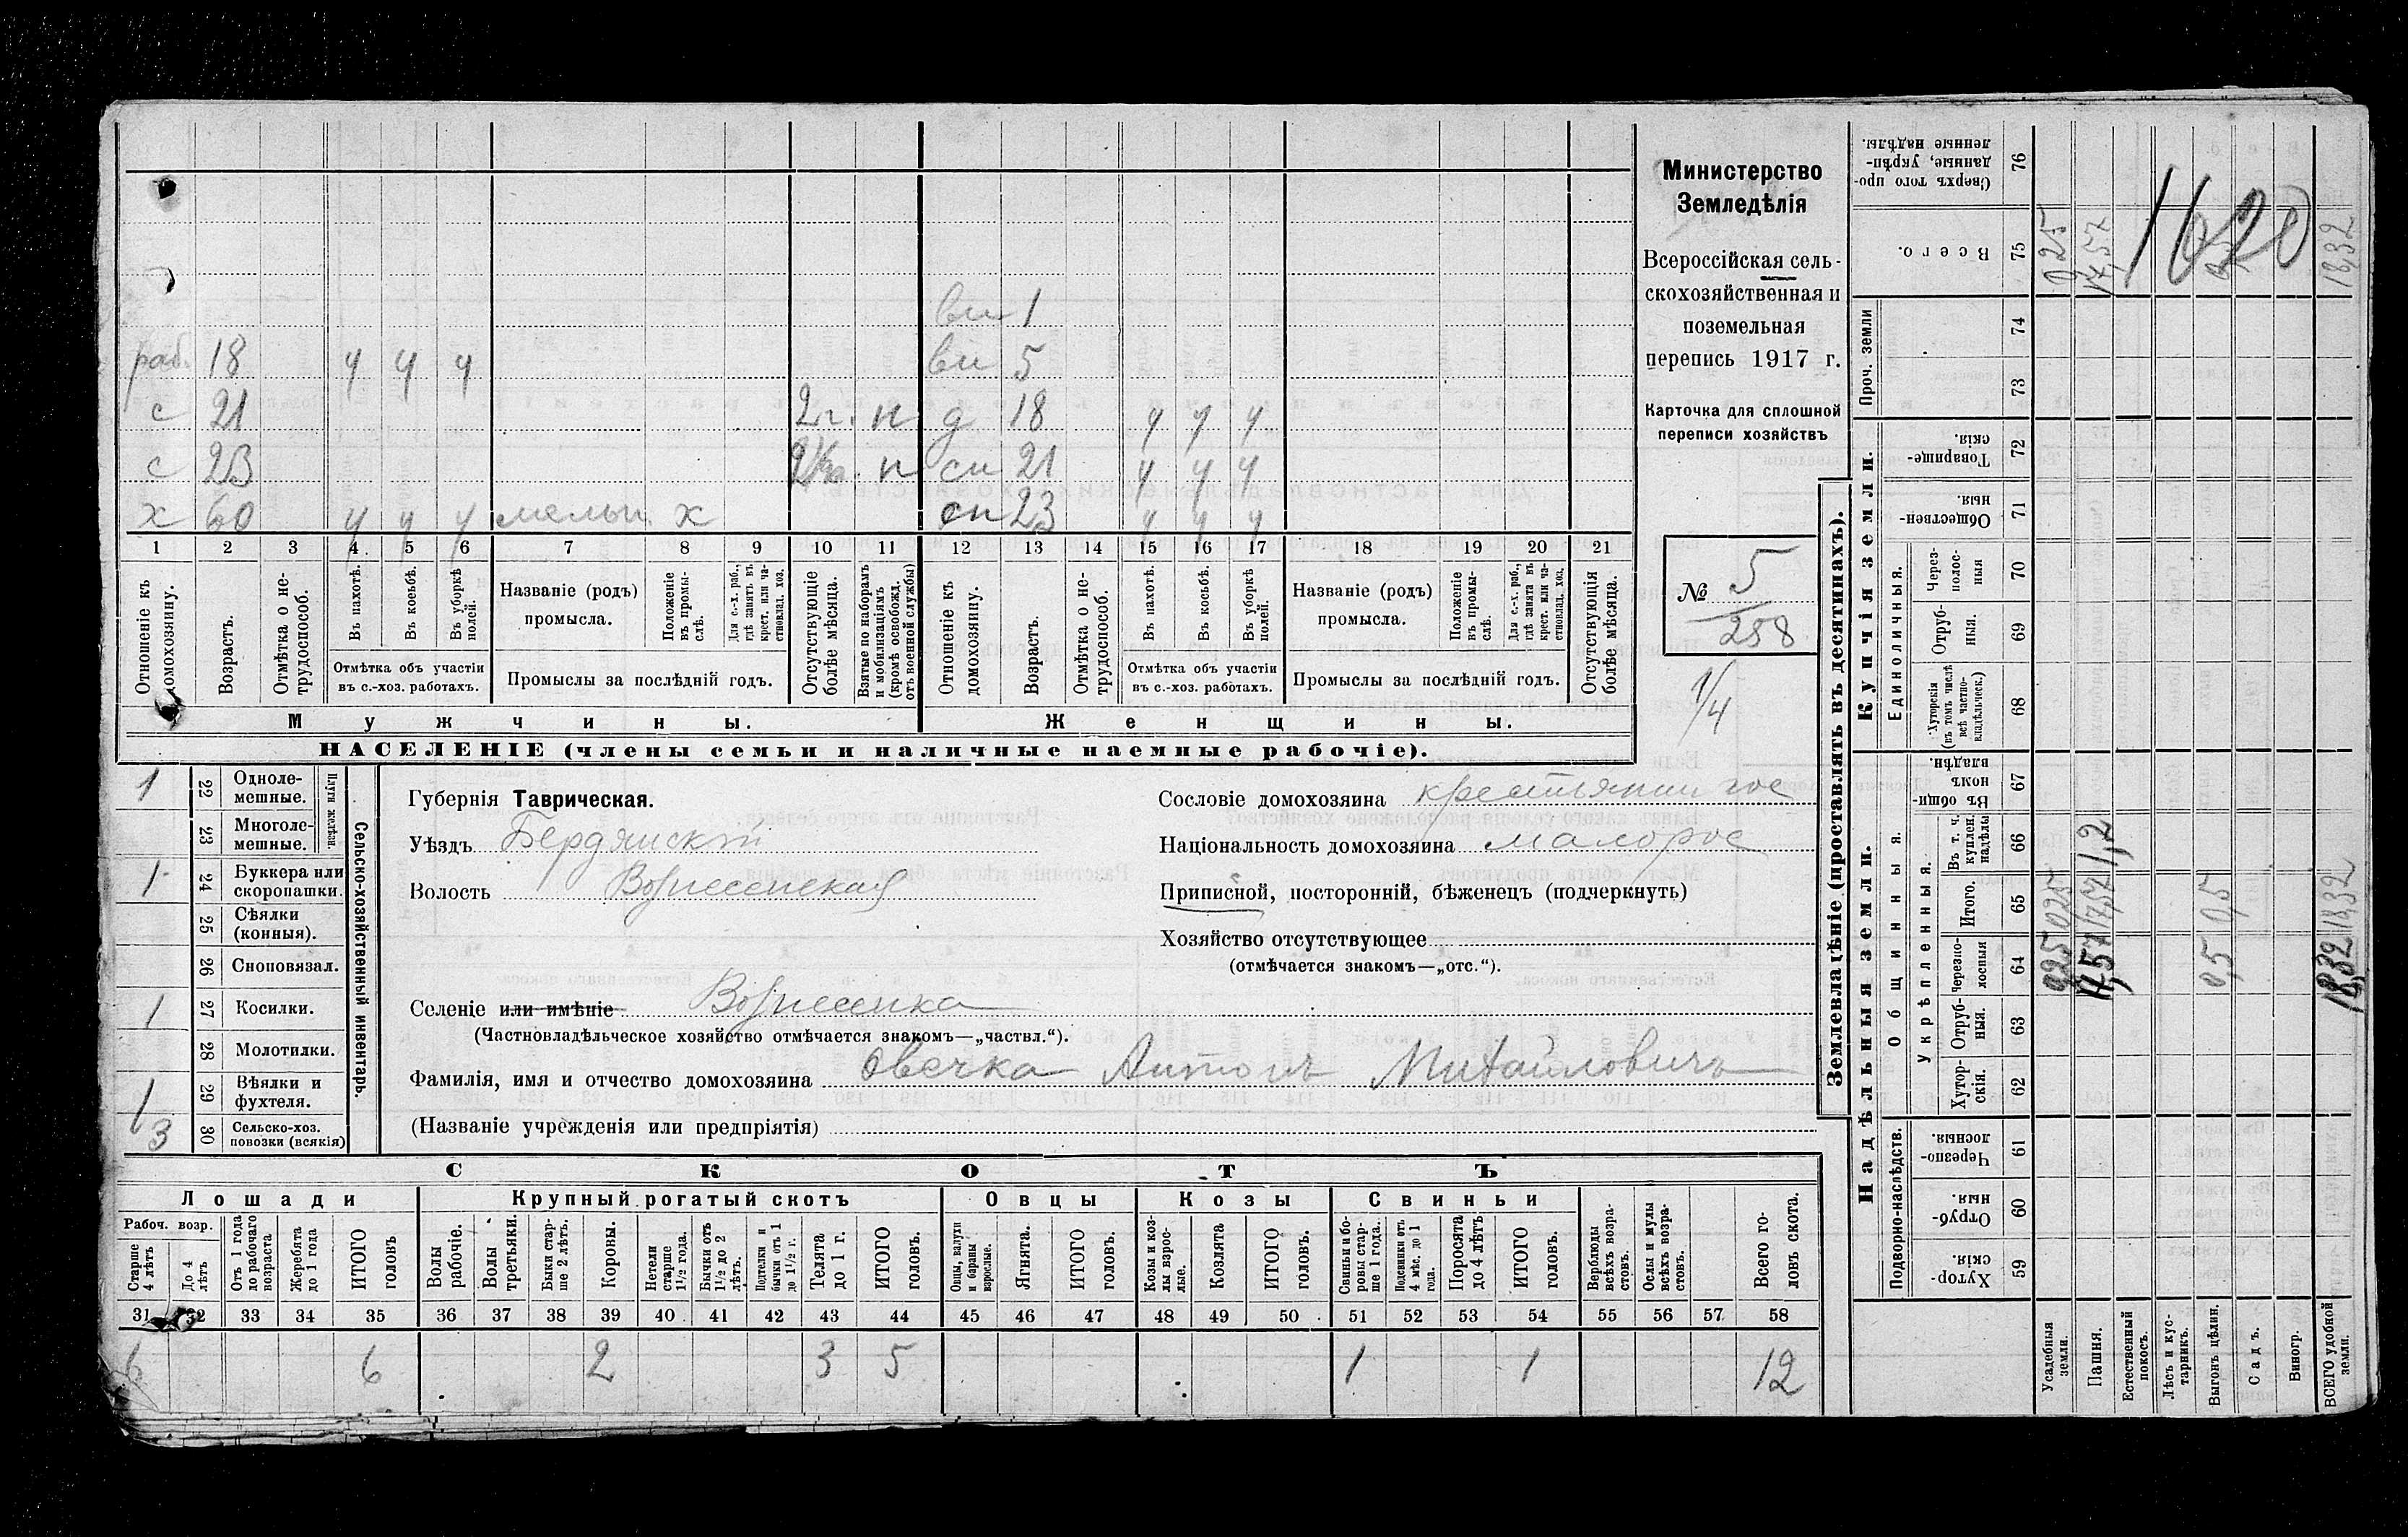 Министерство
Земледѣлія
Всероссійская сель-
скохозяйственная и
поземельная
перепись 1917 г.
Карточка для сплошной
переписи хозяйствъ
№ 5
258
1/4
ви 1
раб. 18 ч ч ч ви 5
с 21 2 г. п д 18 ч ч ч
с 23 п сн 21 ч ч ч
х 60 ч ч ч мельн. х сн 23 ч ч ч
1 2 3 4 5 6 7 8 9 10 11 12 13 14 15 16 17 18 19 20 21
Отношеніе къ домохозяину.
Возрастъ.
Отмѣтка о не-трудоспособ.
Въ пахотѣ.
Въ косьбѣ.
Въ уборкѣ полей.
Отмѣтка объ участіи
въ с.-хоз. работахъ.
Названіе (родъ)
промысла.
Положеніе въ промы-слѣ.
Для с.-х. раб., гдѣ занятъ въ крест. или ча-стновлад. хоз.
Промыслы за послѣдній годъ.
Отсутствующіе болѣе мѣсяца.
Взятые по наборамъ и мобилизаціямъ (кромѣ освобожд. отъ военной службы)
Отношеніе къ домохозяину.
Возрастъ.
Отмѣтка о не-трудоспособ.
Въ пахотѣ.
Въ косьбѣ.
Въ уборкѣ полей.
Отмѣтка объ участіи
въ с.-хоз. работахъ.
Названіе (родъ)
промысла.
Положеніе въ промы-слѣ.
Для с.-х. раб., гдѣ занята въ крест. или ча-стновлад. хоз.
Промыслы за послѣдній годъ.
Отсутствующія болѣе мѣсяца.
Мужчины. Женщины.
НАСЕЛЕНІЕ (члены семьи и наличные наемные рабочіе).
Сельско-хозяйственный инвентарь.
Плуги желѣзн.
1 22 Одноле-мешные.
23 Многоле-мешные.
1 24 Буккера или скоропашки.
25 Сѣялки (конныя).
26 Сноповязал.
1 27 Косилки.
28 Молотилки.
1 29 Вѣялки и фухтеля.
3 30 Сельско-хоз. повозки (всякія)
Губернія Таврическая.
Уѣздъ Бердянскій
Волость Вознесенская
Сословіе домохозяина крестьянин гос
Національность домохозяина малорос
Приписной, посторонній, бѣженецъ (подчеркнуть)
Хозяйство отсутствующее
(отмѣчается знакомъ—„отс.“).
Селеніе или имѣніе Вознесенка
(Частновладѣльческое хозяйство отмѣчается знакомъ—„частвл.“).
Фамилія, имя и отчество домохозяина Овечка Антонъ Михайловичъ
(Названіе учрежденія или предпріятія)
СКОТЪ
Лошади Крупный рогатый скотъ Овцы Козы Свиньи
Рабоч. возр.
Старше 4 лѣтъ
До 4 лѣтъ
Отъ 1 года до рабочаго возраста
Жеребята до 1 года
ИТОГО головъ
Волы рабочіе.
Волы третьяки.
Быки стар-ше 2 лѣтъ.
Коровы.
Нетели старше 1½ года.
Бычки отъ 1½ до 2 лѣтъ.
Подтелки и бычки отъ 1 до 1½ г.
Телята до 1 г.
ИТОГО головъ.
Овцы, валухи и бараны взрослые.
Ягнята.
ИТОГО головъ.
Козы и коз-лы взрос-лые.
Козлята
ИТОГО головъ.
Свиньи и бо-ровы стар-ше 1 года.
Подсвинки отъ 4 мѣс. до 1 года.
Поросята до 4 лѣтъ
ИТОГО головъ.
Верблюды всѣхъ возра-стовъ.
Ослы и мулы всѣхъ возра-стовъ.
Всего го-ловъ скота.
31 32 33 34 35 36 37 38 39 40 41 42 43 44 45 46 47 48 49 50 51 52 53 54 55 56 57 58
6 6 2 3 5 1 1 12
Землевладѣніе (проставлять въ десятинахъ).
Надѣльныя земли. Купчія земли.
Проч. земли
Подворно-наслѣдств.
Общинныя.
Укрѣпленныя.
Единоличныя.
59 Хутор-скія.
60 Отруб-ныя.
61 Черезпо-лосныя.
62 Хутор-скія.
63 Отруб-ныя.
64 Черезпо-лосныя
65 Итого.
66 Въ т. ч. куплен. надѣлы
67 Въ общи-номъ владѣн.
68 Хуторскія (въ томъ числѣ всѣ частно-владѣльческ.)
69 Отруб-ныя.
70 Через-полос-ныя
71 Обществен-ныя.
72 Товарище-скія.
73
74
75 Всего.
76 Сверхъ того про-данные, укрѣп-ленные надѣлы.
Усадебныя земли. 0,25 0,25 0,25
Пашня. 17,57 17,57 1,2 17,57
Естественный покосъ.
Лѣсъ и кус-тарникъ.
Выгонъ цѣлин. 0,5 0,5 0,5
Садъ.
Виногр.
ВСЕГО удобной земли. 18,32 18,32 18,32
1620